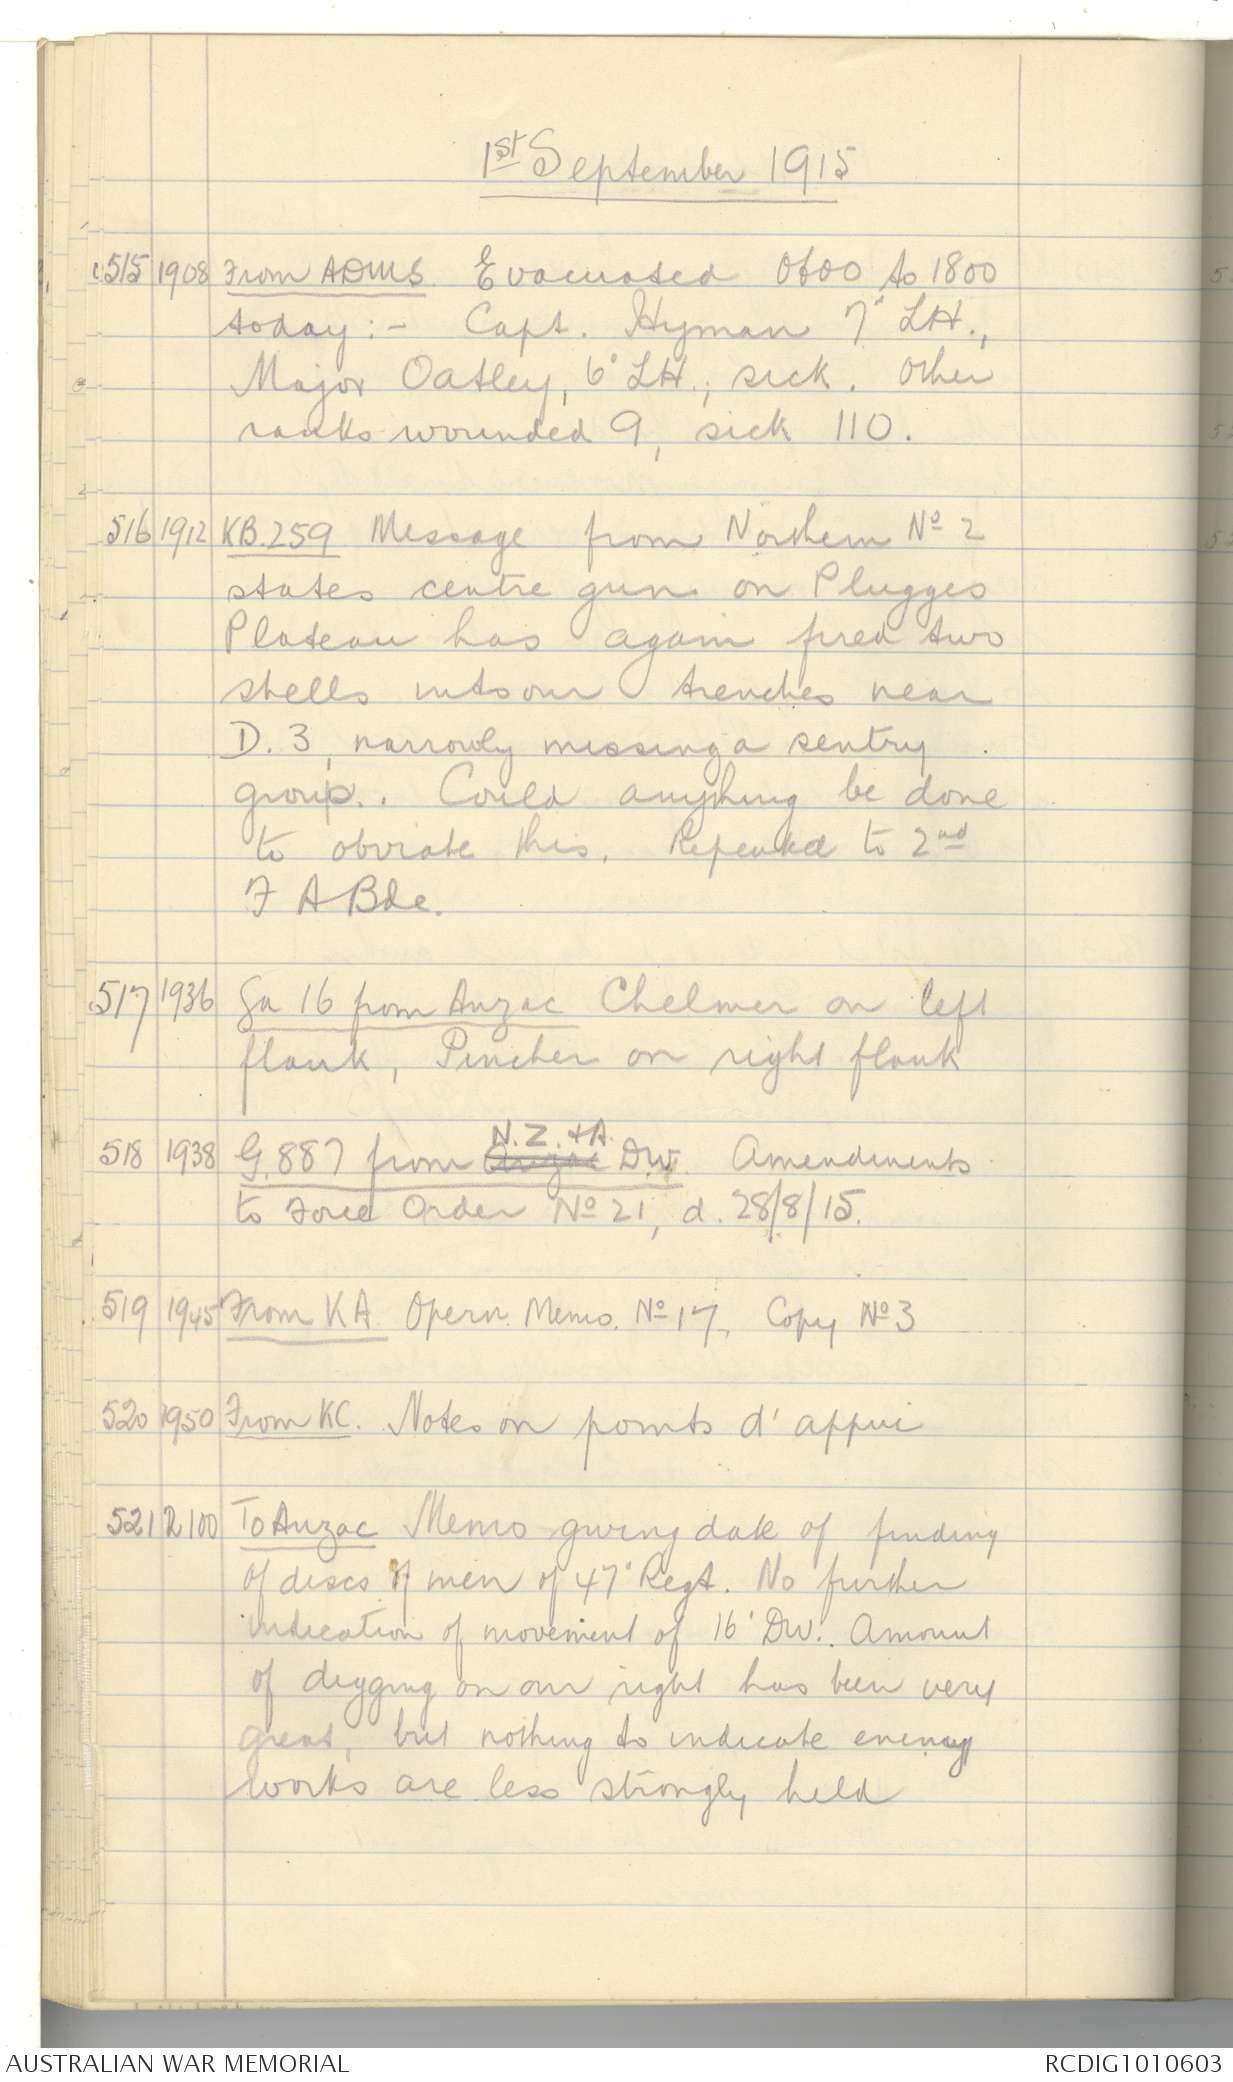 1st September 1915
515 1908 From ADMS. Evacuated 0600 to 1800
today:- Capt. Hyman 7' LH.,
Major Oatley, 6' LH., sick. Other
ranks wounded 9, sick 110.
516 1912 KB.259 Message from Northern No 2
states centre gun on Plugges
Plateau has again fired two
shells into our trenches near
D.3, narrowly missing a sentry
group. Could anything be done
to obviate this. Repeated to 2nd
F A Bde.
517 1936 Ga 16 from Anzac Chelmer on left
flank, Pincher on right flank
N.Z. & A.
518 1938 G.887 from Anzac Div. Amendments
to Force Order No 21, d. 28/8/15.
519 1945 From KA Opern. Memo. No 17, Copy No 3
520 1950 From KC. Notes on points d'appui
521 2100 To Anzac Memo giving date of finding
of discs of men of 47' Regt. No further
indication of movement of 16' Div. Amount
of digging on our right has been very
great, but nothing to indicate enemy
works are less strongly held
AUSTRALIAN WAR MEMORIAL
RCDIG1010603